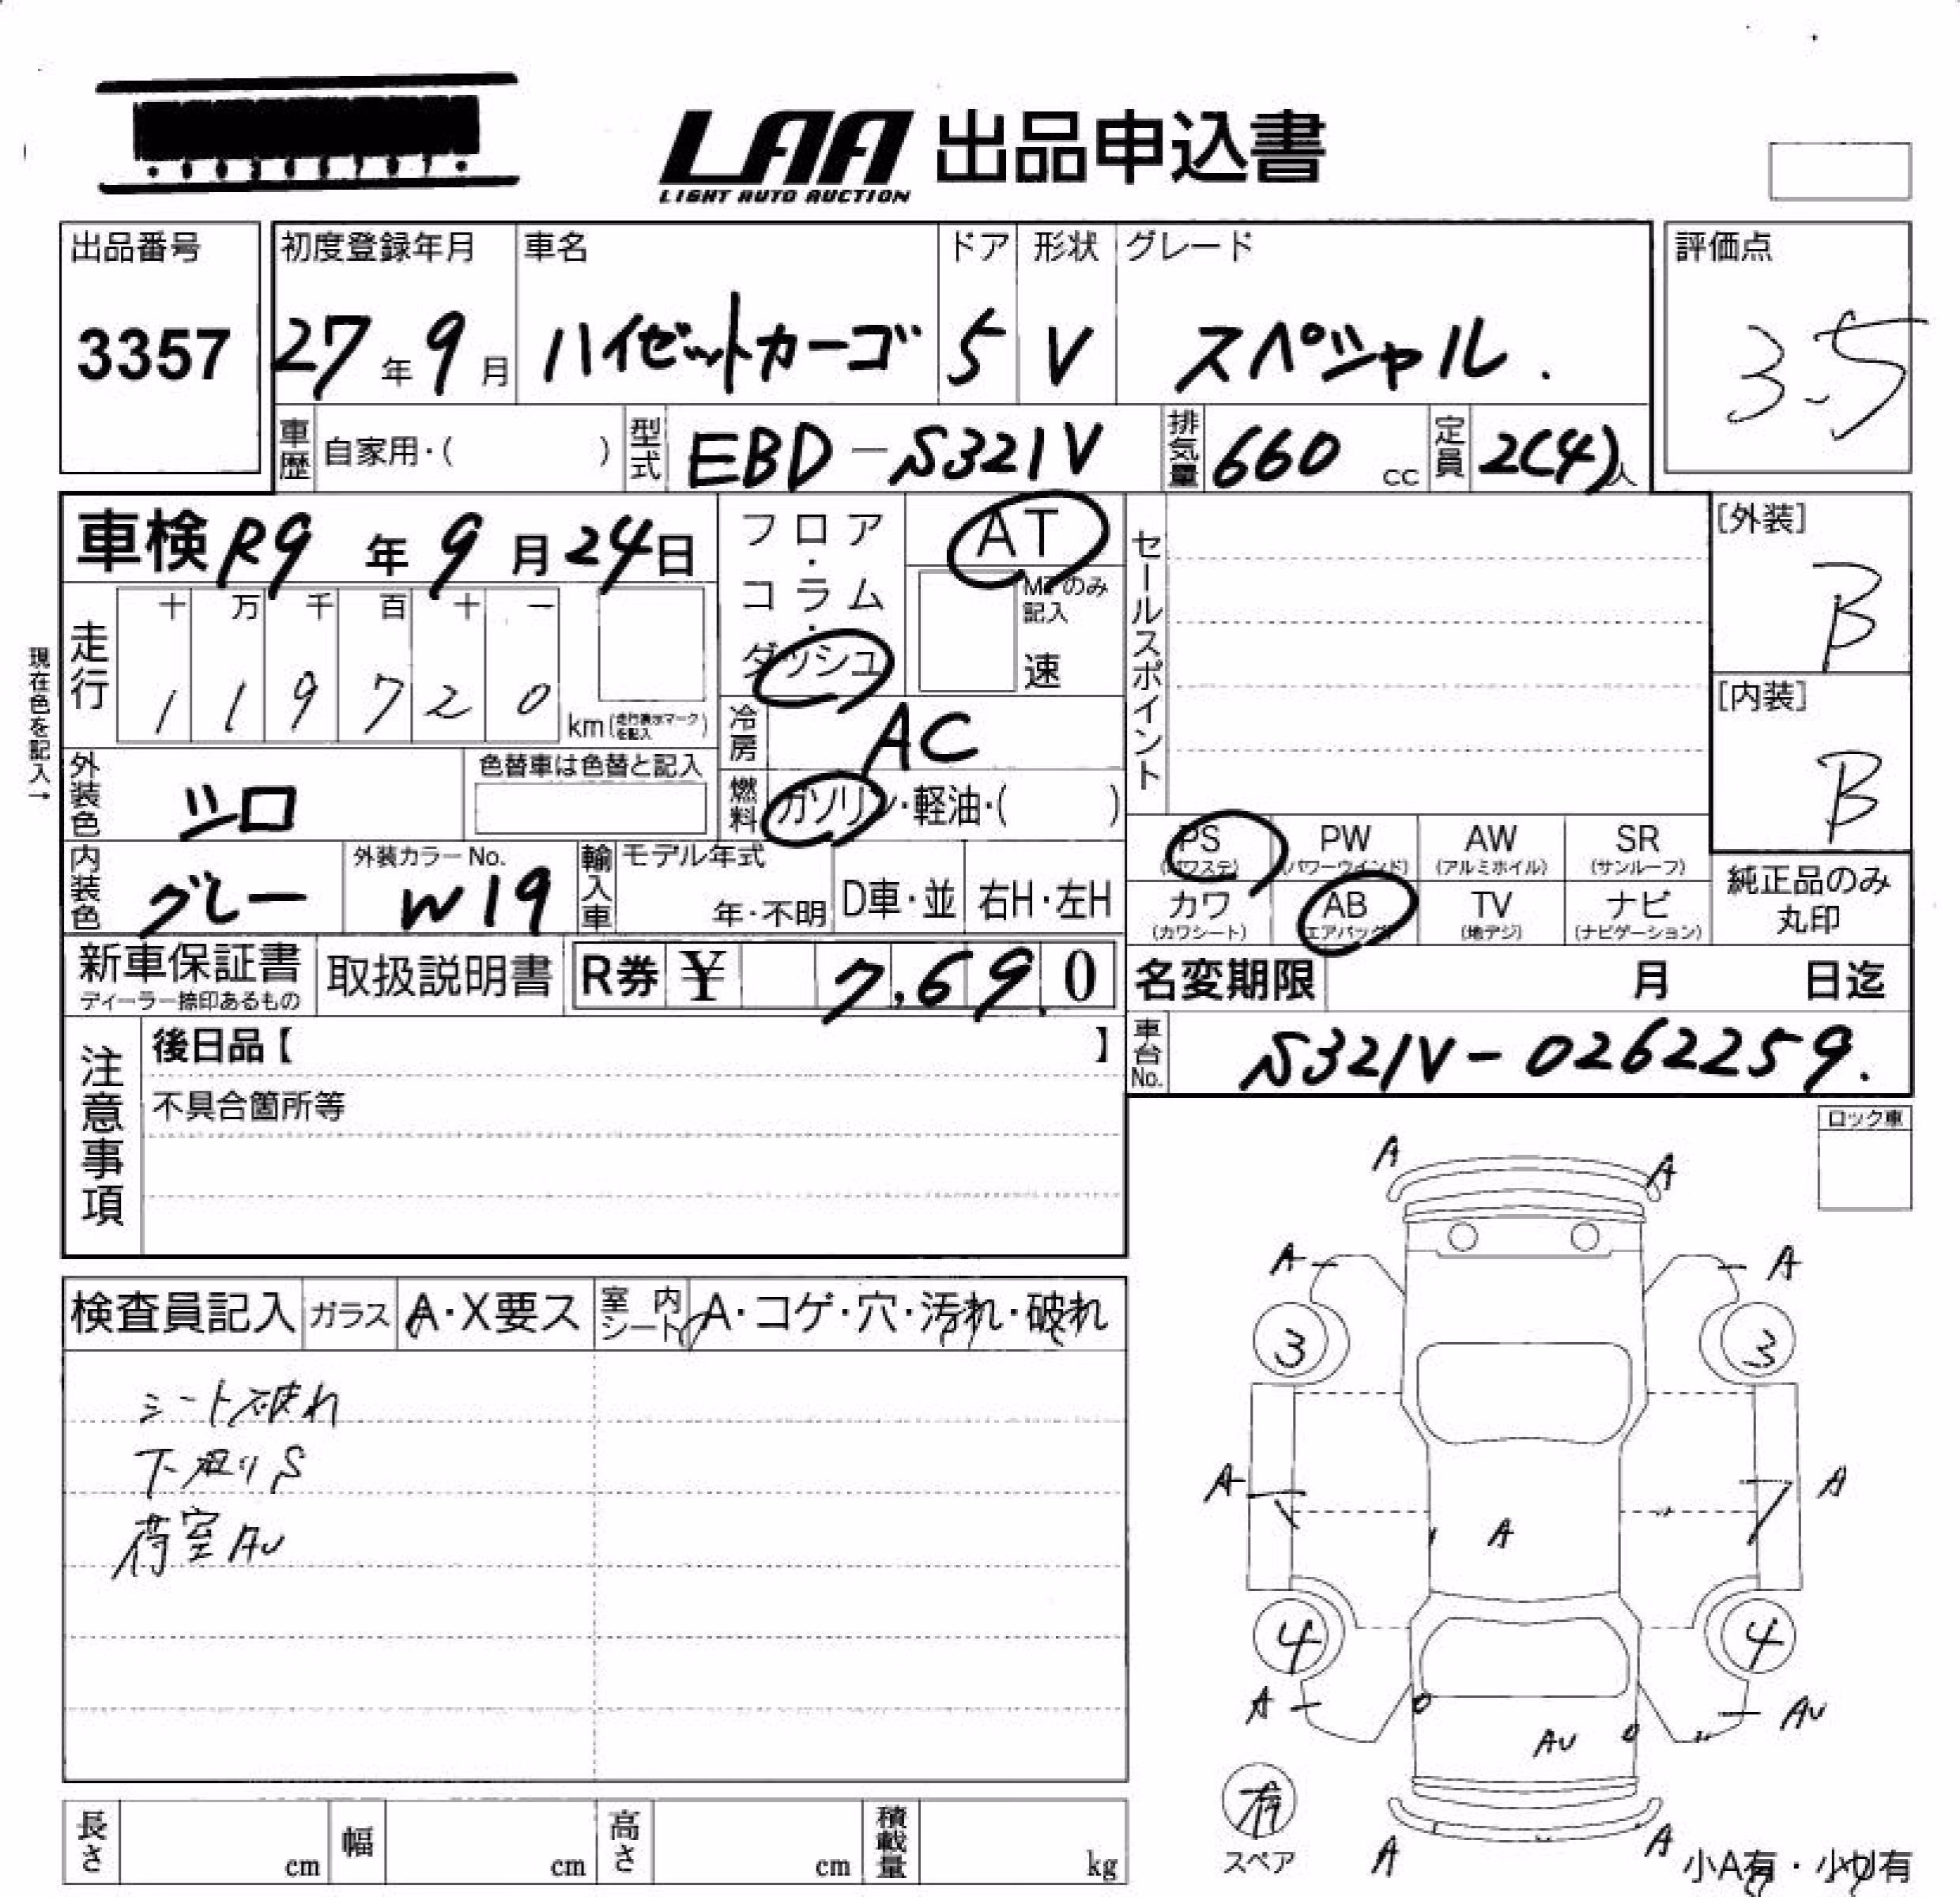 LAA 出品申込書
LIGHT AUTO AUCTION
出品番号
3357
初度登録年月
27年9月
車名
ハイゼットカーゴ
ドア
5
形状
V
グレード
スペシャル.
評価点
3.5
車歴 自家用・( )
型式 EBD-S321V
排気量 660 cc
定員 2(4)人
車検 R9年9月24日
フロア・コラム・ダッシュ
AT
MTのみ記入
速
セールスポイント
[外装]
B
現在色を記入→
走行
十 万 千 百 十 一
1 1 9 7 2 0
km(走行表示マークを記入)
冷房 AC
[内装]
B
外装色 シロ
色替車は色替と記入
燃料 ガソリン・軽油・( )
内装色 グレー
外装カラーNo.
W19
輸入車
モデル年式
年・不明
D車・並
右H・左H
PS (パワステ)
PW (パワーウインド)
AW (アルミホイル)
SR (サンルーフ)
カワ (カワシート)
AB (エアバッグ)
TV (地デジ)
ナビ (ナビゲーション)
純正品のみ
丸印
新車保証書
ディーラー捺印あるもの
取扱説明書
R券 ¥ 7,690
名変期限 月 日迄
車台No. S321V-0262259.
注意事項
後日品【 】
不具合箇所等
ロック車
検査員記入
ガラス A・X要ス
室内シート A・コゲ・穴・汚れ・破れ
シート破れ
下廻りS
荷室AU
A A
A A
3 3
A A
A
4 4
A AU
AU
有
スペア
A A
小A有・小U有
長さ cm
幅 cm
高さ cm
積載量 kg